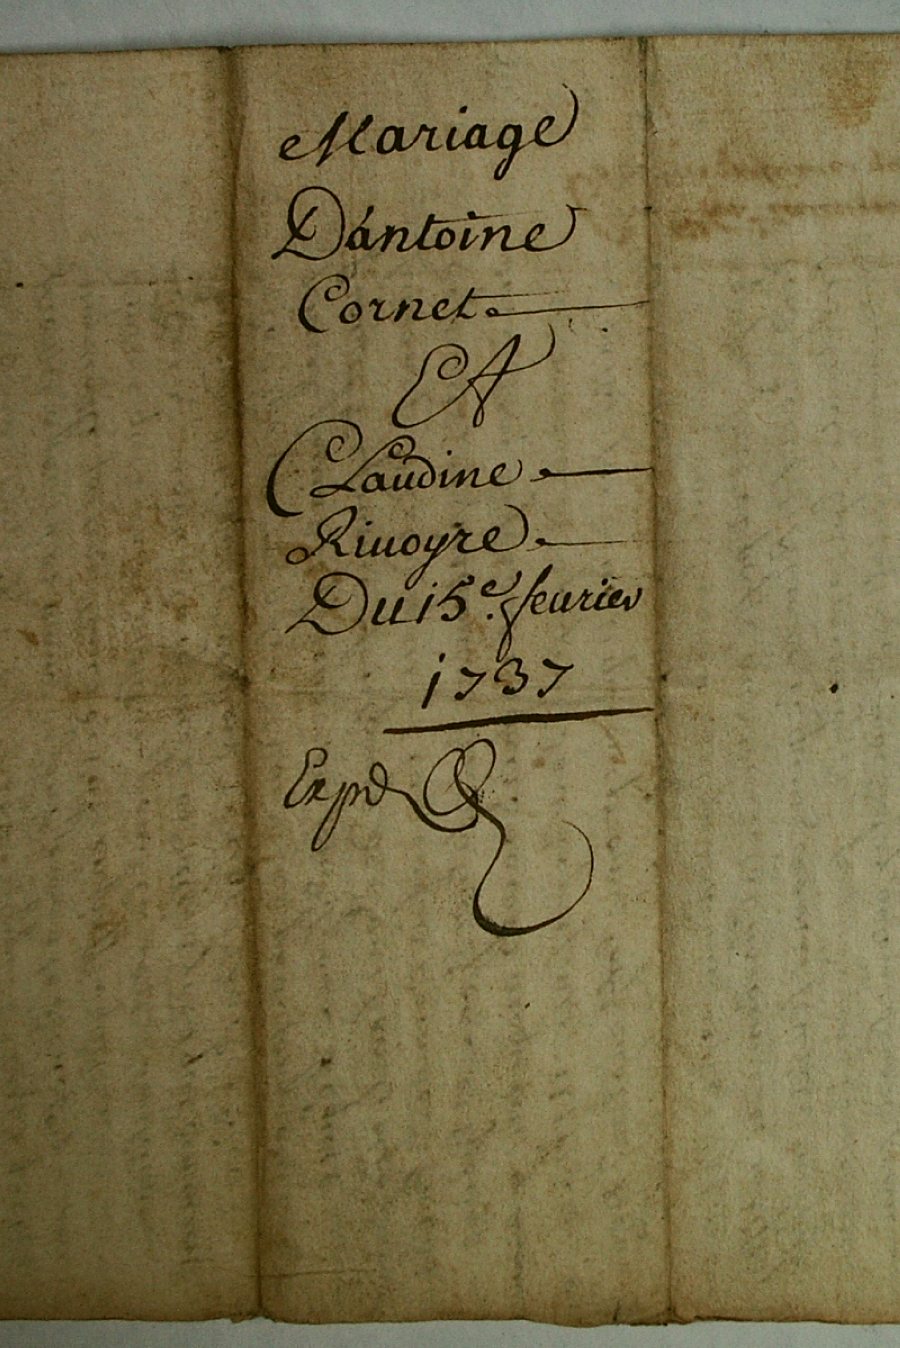 Mariage
D'antoine
Cornet
Et
Claudine
Riuoyre
Du 15e. feurier
1737
Expé